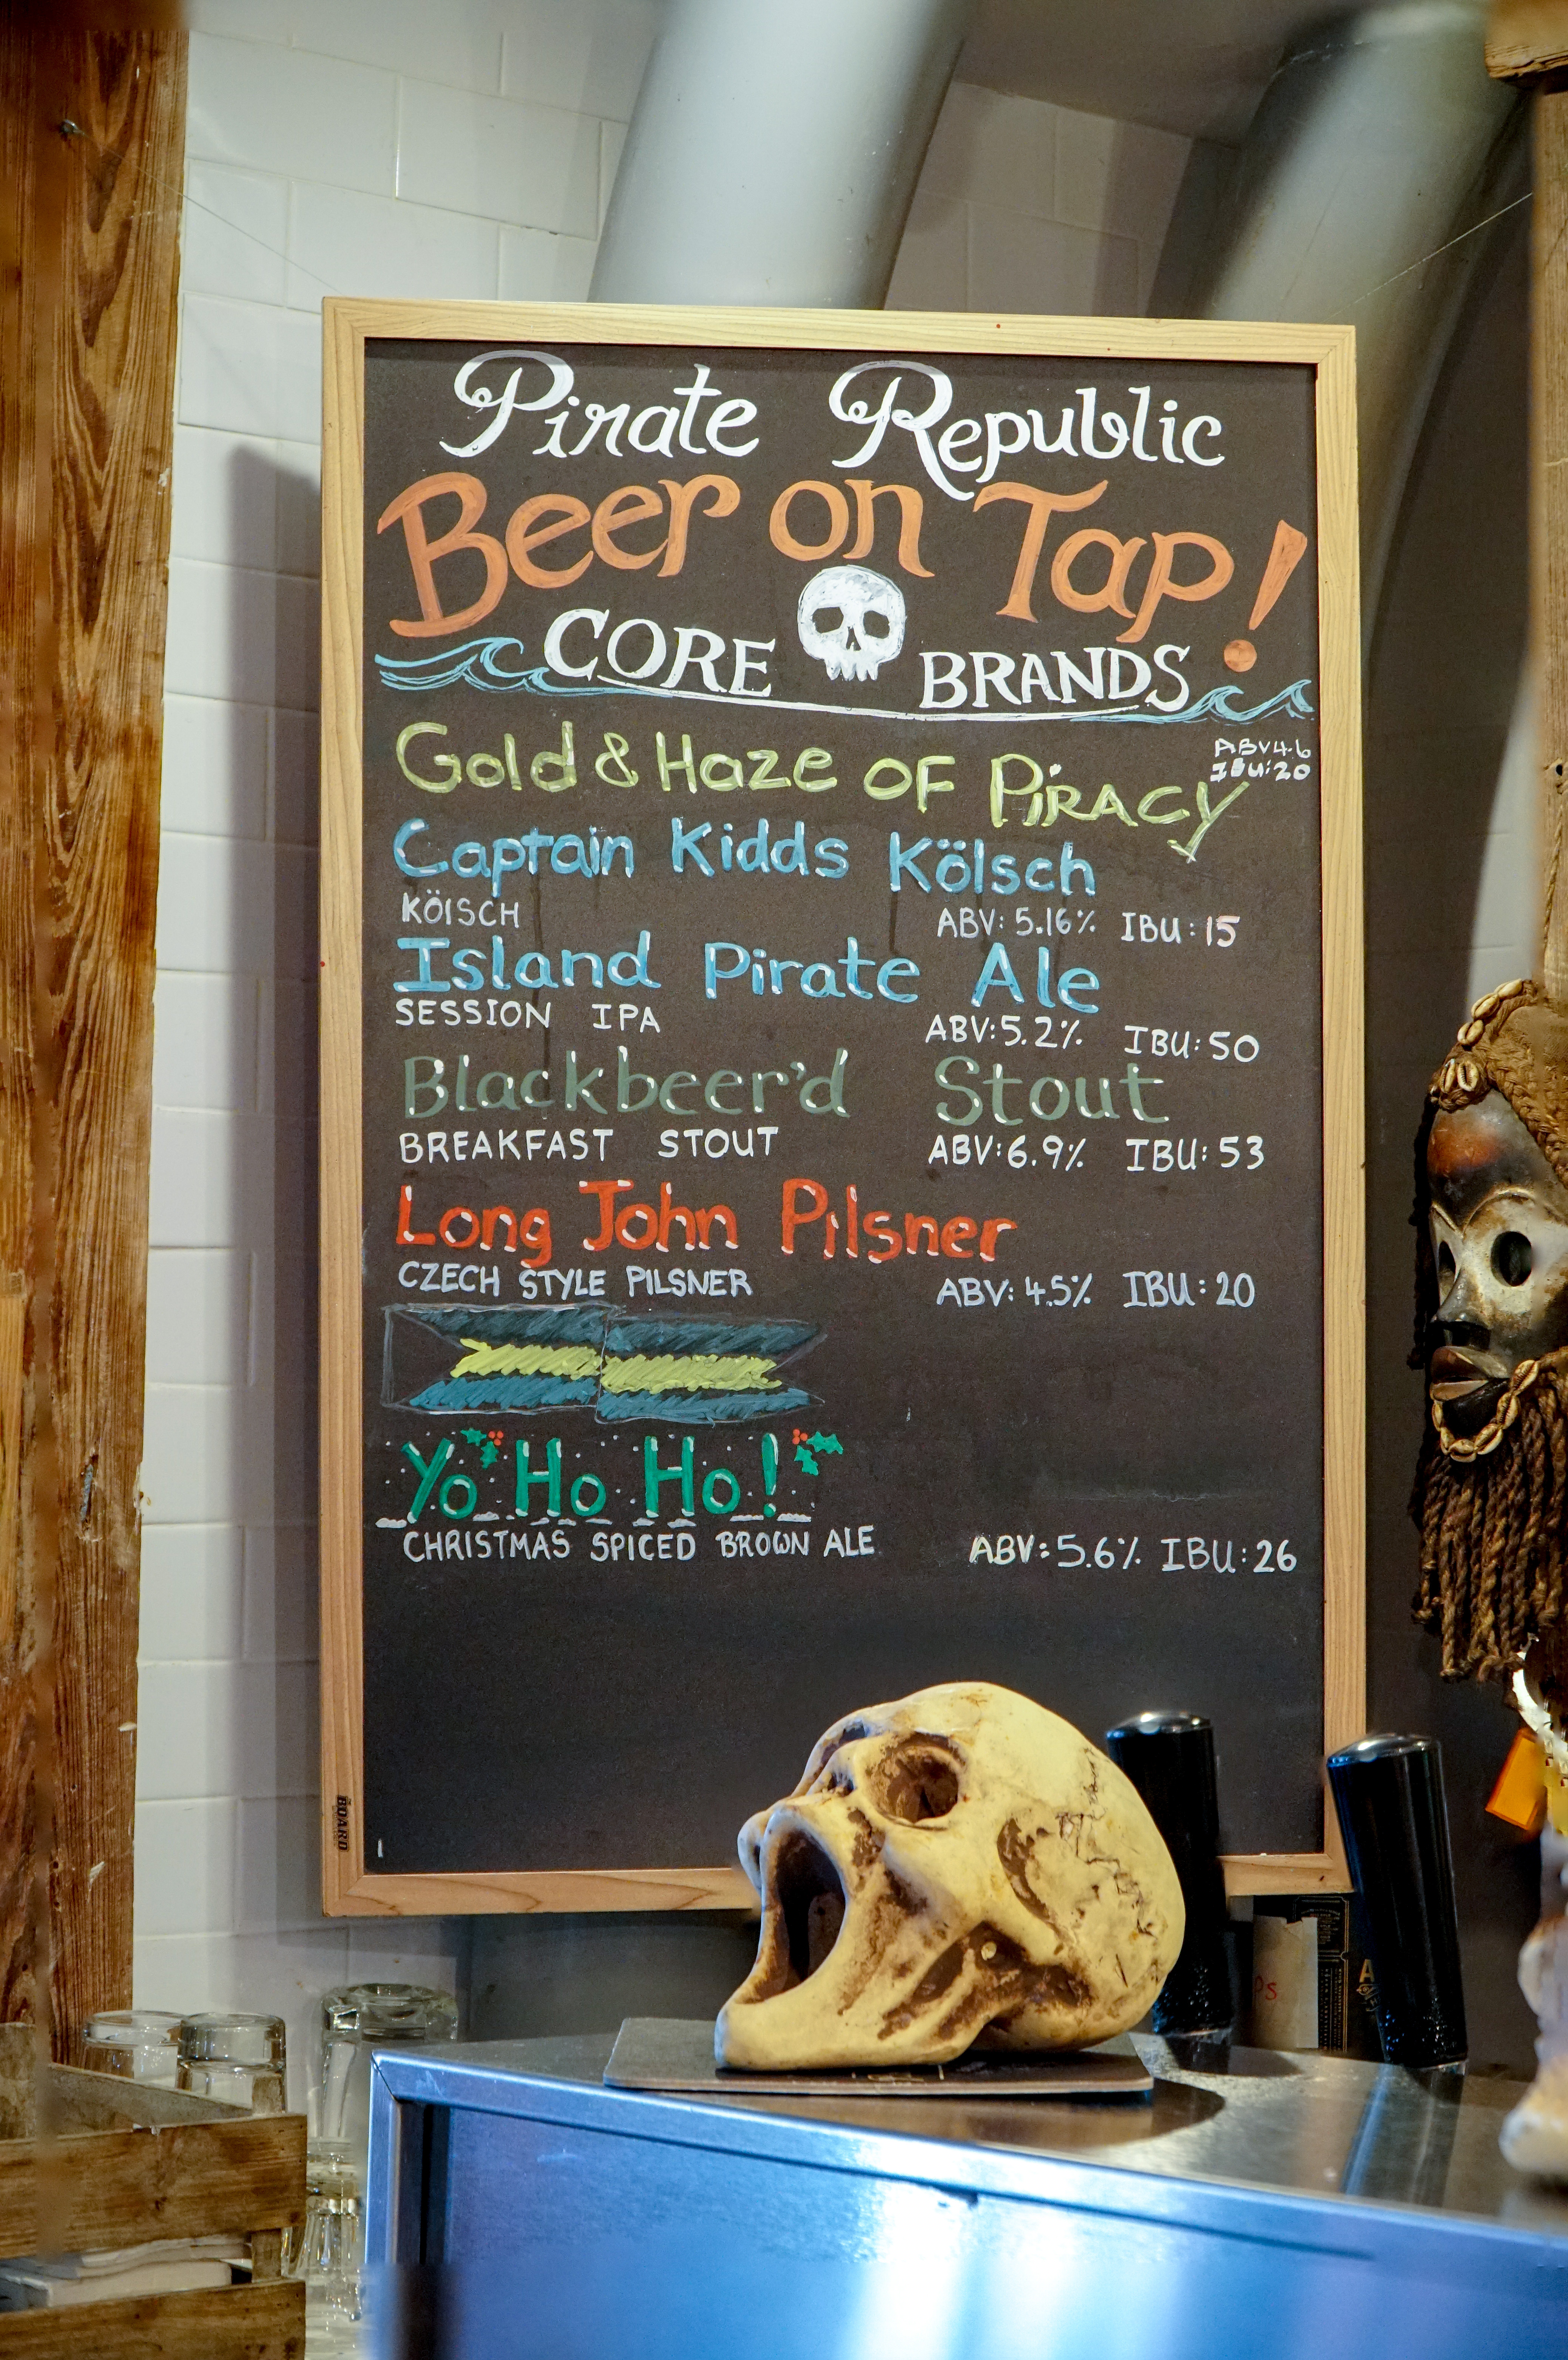 Pirate Republic
Beer on Tap!
CORE BRANDS
Gold & Haze OF PiRACY
ABV4.6
IBU:20
Captain Kidds Kölsch
KÖlSCH ABV: 5.16% IBU: 15
Island Pirate Ale
SESSION IPA ABV: 5.2% IBU: 50
Blackbeer'd Stout
BREAKFAST STOUT ABV: 6.9% IBU: 53
Long John Pilsner
CZECH STYLE PILSNER ABV: 4.5% IBU: 20
Yo Ho Ho!
CHRISTMAS SPICED BROWN ALE ABV: 5.6% IBU: 26
BOARD